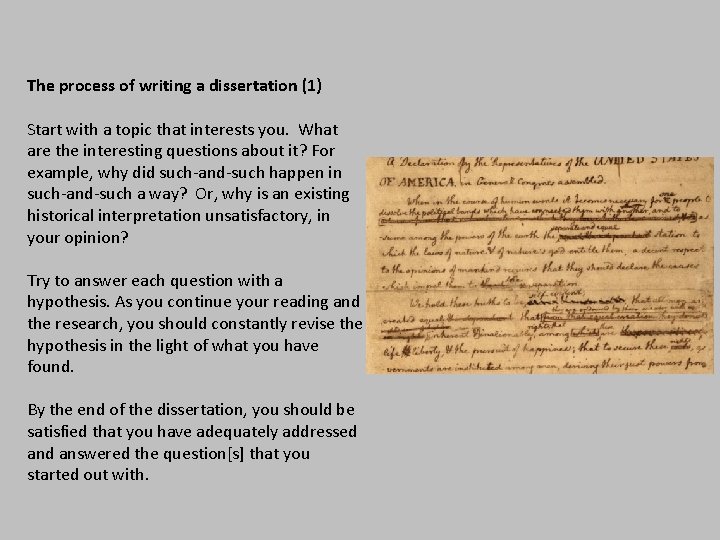 The process of writing a dissertation (1)
Start with a topic that interests you.  What
are the interesting questions about it? For
example, why did such-and-such happen in
such-and-such a way?  Or, why is an existing
historical interpretation unsatisfactory, in
your opinion?
Try to answer each question with a
hypothesis. As you continue your reading and
the research, you should constantly revise the
hypothesis in the light of what you have
found.
By the end of the dissertation, you should be
satisfied that you have adequately addressed
and answered the question[s] that you
started out with.
a Declaration by the Representatives of the UNITED STATES
OF AMERICA, in General Congress assembled.
When in the course of human events it becomes necessary for
one
people to
dissolve the political bands which have connected them with another, and to
separate and equal
sume among the powers of the earth the station to
which the laws of nature & of nature's god entitle them, a decent respect
to the opinions of mankind requires that they should declare the causes
which impel them to the
We hold these truths to be
that all men are
created equal
life & liberty, & the pursuit of happiness; that to secure these
vernments are instituted among men, deriving their just powers from